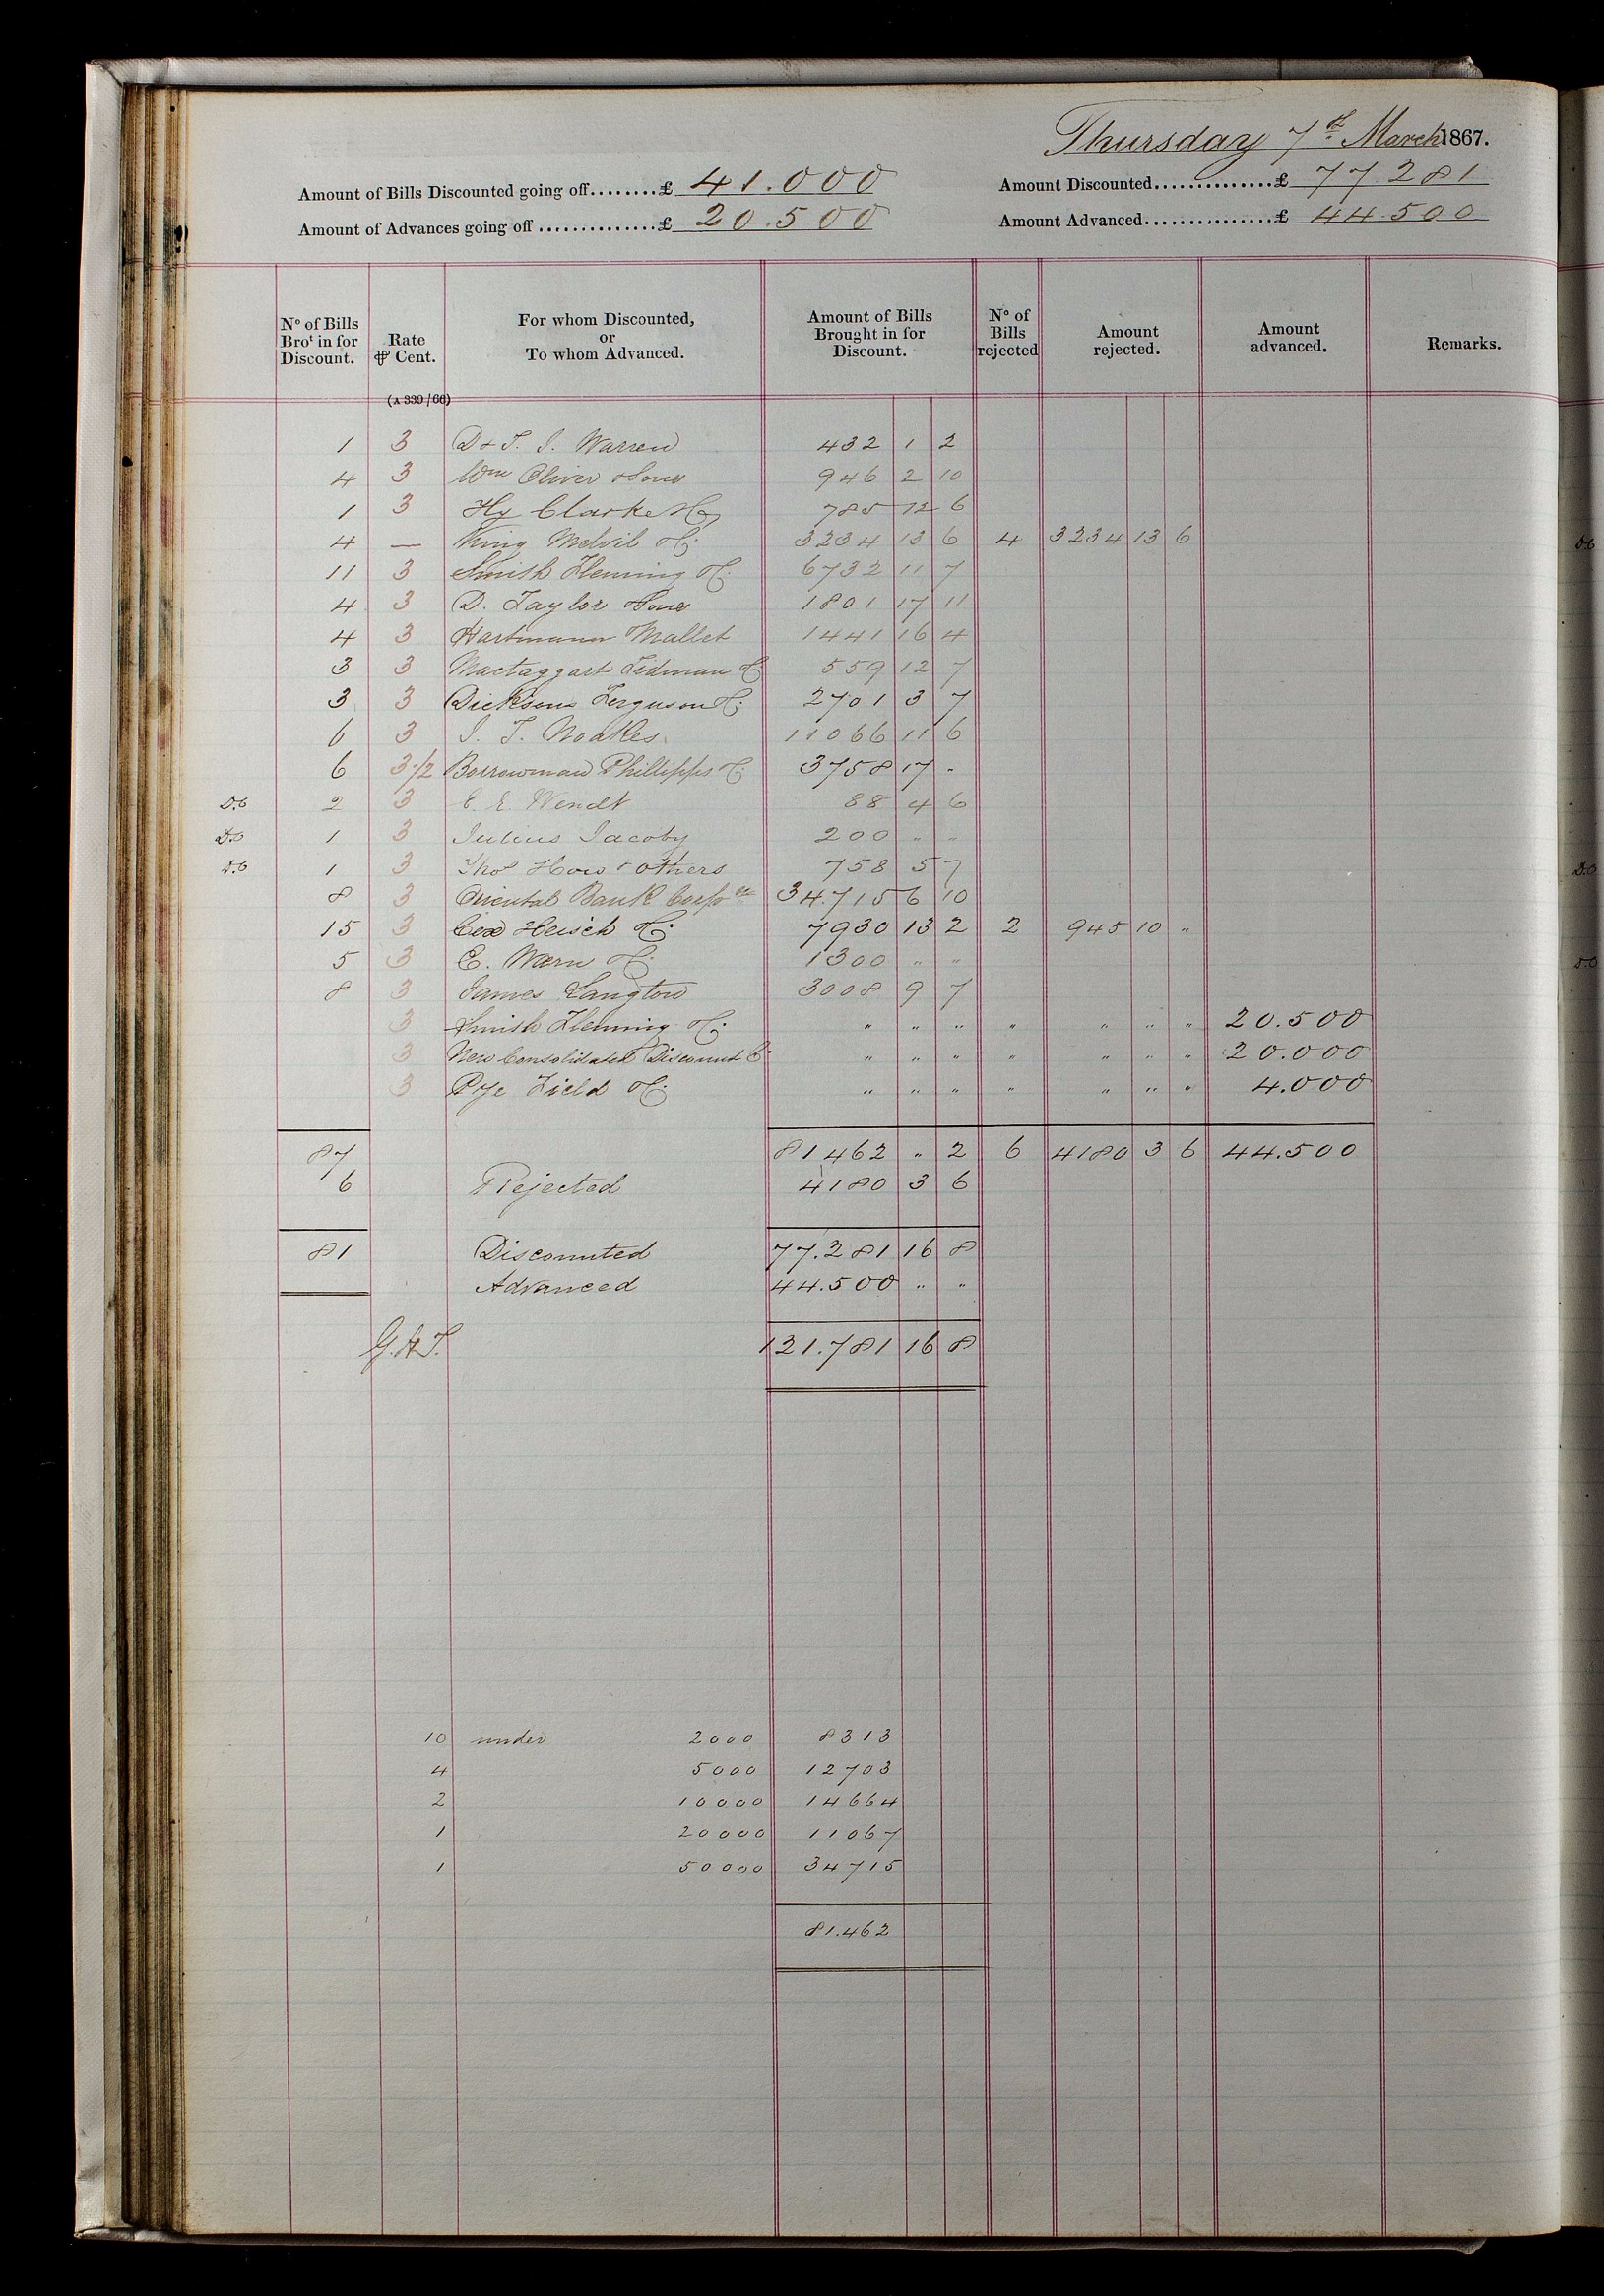 Thursday 7th March 1867.
Amount of Bills Discounted going off........£ 41.000 Amount Discounted...............£ 77.281
Amount of Advances going off...............£ 20.500 Amount Advanced................£ 44.500
No of Bills Brot in for Discount. Rate ⅌ Cent. For whom Discounted, or To whom Advanced. Amount of Bills Brought in for Discount. No of Bills rejected Amount rejected. Amount advanced. Remarks.
(A 339/66)
1 3 D & T. I. Warren 432 1 2
4 3 Wm Oliver & Sons 946 2 10
1 3 Hy Clarke & Co 785 12 6
4 — King Melvil & Co. 3234 13 6 4 3234 13 6
11 3 Smith Fleming & Co. 6732 11 7
4 3 D. Taylor & Sons 1801 17 11
4 3 Hartmann Mallet 1441 16 4
3 3 Mactaggart Tidman & Co 559 12 7
3 3 Dicksons Ferguson & Co. 2701 3 7
6 3 I. T. Noakes 11066 11 6
6 3 1/2 Borrowman Phillipps & Co. 3758 17 "
D.O 2 3 E. E. Wendt 88 4 6
D.O 1 3 Julius Jacoby 200 " "
D.O 1 3 Thos How & others 758 5 7
8 3 Oriental Bank Corpon 34.715 6 10
15 3 Cox Heisch & Co. 7930 13 2 2 945 10 "
5 3 C. Warn & Co. 1300 " "
8 3 James Langton 3008 9 7
3 Smith Fleming & Co. " " " " " " " 20.500
3 New Consolidated Discount Co. " " " " " " " 20.000
3 Pye Field & Co. " " " " " " " 4.000
87 81462 " 2 6 4180 3 6 44.500
6 Rejected 4180 3 6
81 Discounted 77.281 16 8
Advanced 44.500 " "
G.A.T. 121.781 16 8
10 under 2000 8313
4 5000 12703
2 10000 14664
1 20000 11067
1 50000 34715
81.462
D.O
D.O
D.O